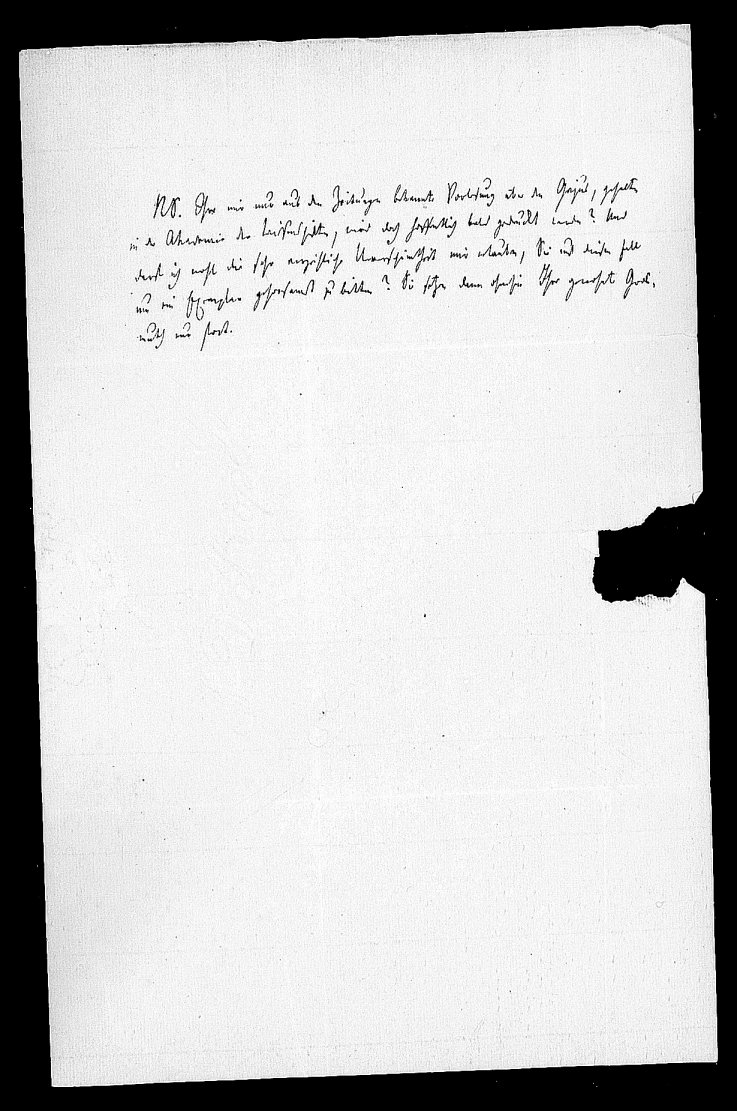 NS. Ihre mir nur aus den Zeitungen bekannte Vorlesung über den Gajus, gehalten
in der Akademie der Wissenschaften, wird doch hoffentlich bald gedruckt werden? Und
darf ich wohl die sehr Unverschämtheit mir erlauben, Sie auf diesen Fall
um ein Exemplar gehorsamst zu bitten? Sie setzen dann ohnehin Ihre
muth nur fort.